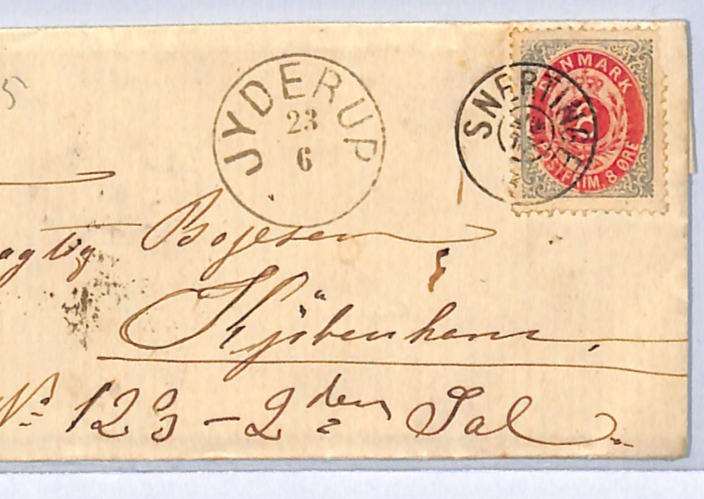 JYDERUP
23
6
SNERTINGE
DANMARK
8
POSTFRIM 8 ØRE
Bojesen
Kjöbenhavn.
No 123 - 2den Sal